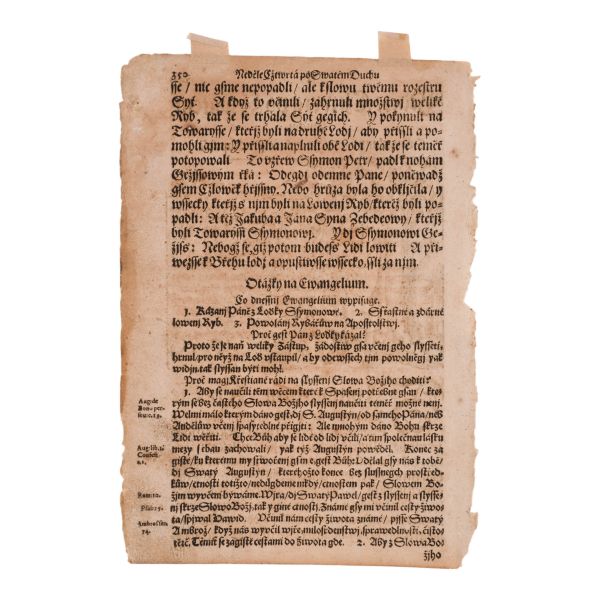 350 Neděle Cžtwrtá po Swatém Duchu
sse / nic gsme nepopadli / ale k slowu twému rozestru
Sýť. A když to včinili / zahrnuli množstwj weliké
Ryb, tak že se trhala Syť gegich. Y pokynuli na
Towarysse / kteřjž byli na druhé Lodj / aby přissli a po-
mohli gim: Y přissli a naplnili obě Lodi / tak že se téměř
potopowali To vzřew Ssymon Petr / padl k nohám
Gežjssowým řka: Odegdi odemne Pane / poněwadž
gsem Cžlowěk hřjssný. Nebo hrůza byla ho obkljčila / y
wssecky kteřjž s njm byli na Lowenj Ryb / kteréž byli po-
padli: A též Jakuba a Jána Syna Zebedeowy / kteřjž
byli Towaryssi Ssymonowi. Y dj Ssymonowi Ge-
žjss: Nebog se, giž potom budess Lidi lowiti A při-
wezsse k Břehu lodj a opustiwsse wssecko, ssli za njm.
Otázky na Ewangelium.
Co dnessnj Ewangelium wypisuge.
1. Kázanj Páně z Lodky Ssymonowé. 2. Sstastné a zdárné
lowenj Ryb. 3. Powolánj Rybářůw na Aposstolstwj.
Proč gest Pán z Lodky kázal?
Proto že je naň weliký Zástup, žádostiw gsa včenj geho slysseti
hrnul / pro něyž na Loď wstaupil / a aby ode wssech tjm powolněgj yak
widjn, tak slyssan býti mohl.
Proč magj Křestiané rádi na slyssenj Slowa Božjho choditi?
1. Aby se naučili těm wěcem kteréž k Spasenj potřebné gsau / kte-
rým se bez častého Slowa Božjho slyssenj naučiti téměř možné nenj.
Welmi málo kterým dáno gest, dj S. Augustýn / od samého Pána / neb
Andělůw včenj spasytedlné přigjti: Ale mnohým dáno Bohu skrze
Lidi wěřiti. Chce Bůh aby se lidé od lidj včili / a tjm společnau lásku
mezy sebau zachowali / yak týž Augustýn powěděl. Konec za-
gisté / ku kterému my stwořenj gsme gest Bůh: Vdělal gsy nás k tobě /
dj Swatý Augustýn / kteréhožto konce bez slussnegch prostřed-
kůw / ctnosti totižto / nedůgdeme nikdy / ctnostem pak / Slowem Bo-
žjm wyvčeni býwáme. Wjra / dj Swatý Pawel / gest z slyssenj a slysse-
nj skrze Slowo Božj, tak y giné ctnosti. Známé gsy mi včinil cesty žiwo-
ta / spjwal Dawid. Včinil nám cesty žiwota známé / pjsse Swatý
Ambrož / když nás wyvčil wjře, milosrdenstwj, sprawedlnosti, čisto-
tě tč. Těmiť se zagisté cestami do žiwota gde. 2. Aby z Slowa Bo-
žjho
Aug: de
Bono per-
Aug: lib. 1.
Confess.
c. 1.
Rom: 10.
Psal: 15.
Ambrosius